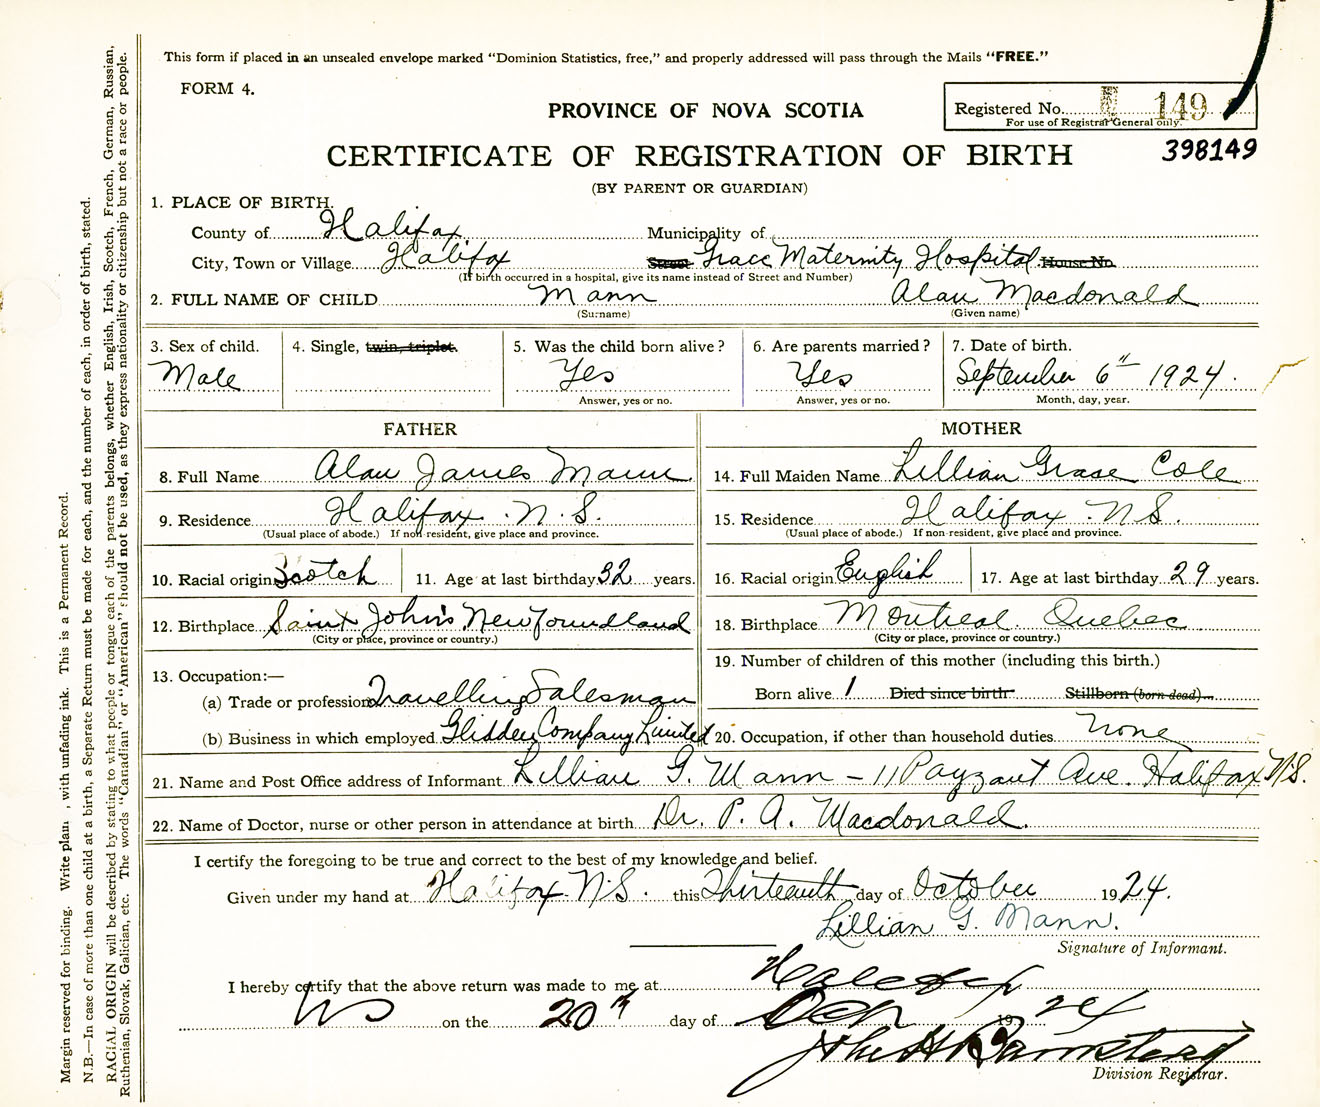 This form if placed in an unsealed envelope marked "Dominion Statistics, free," and properly addressed will pass through the Mails "FREE."
FORM 4.
PROVINCE OF NOVA SCOTIA
Registered No. 149
For use of Registrar General only.
398149
CERTIFICATE OF REGISTRATION OF BIRTH
(BY PARENT OR GUARDIAN)
1. PLACE OF BIRTH.
County of Halifax Municipality of
City, Town or Village Halifax Street Grace Maternity Hospital House No.
(If birth occurred in a hospital, give its name instead of Street and Number)
2. FULL NAME OF CHILD Mann Alan Macdonald
(Surname) (Given name)
3. Sex of child. 4. Single, twin, triplet. 5. Was the child born alive? 6. Are parents married? 7. Date of birth.
Male Yes Yes September 6th 1924.
Answer, yes or no. Answer, yes or no. Month, day, year.
FATHER MOTHER
8. Full Name Alan James Mann 14. Full Maiden Name Lillian Grase Cole
9. Residence Halifax. N.S. 15. Residence Halifax. N.S.
(Usual place of abode.) If non-resident, give place and province. (Usual place of abode.) If non-resident, give place and province.
10. Racial origin Scotch 11. Age at last birthday 32 years. 16. Racial origin English 17. Age at last birthday 29 years.
12. Birthplace Saint John's Newfoundland 18. Birthplace Montreal Quebec
(City or place, province or country.) (City or place, province or country.)
13. Occupation:— 19. Number of children of this mother (including this birth.)
(a) Trade or profession Travelling Salesman Born alive 1 Died since birth Stillborn (born dead)
(b) Business in which employed Glidden Company Limited 20. Occupation, if other than household duties None
21. Name and Post Office address of Informant Lillian G. Mann – 11 Payzant Ave. Halifax N.S.
22. Name of Doctor, nurse or other person in attendance at birth Dr. P. A. Macdonald.
I certify the foregoing to be true and correct to the best of my knowledge and belief.
Given under my hand at Halifax N.S. this Thirteenth day of October 1924.
Lillian G. Mann.
Signature of Informant.
I hereby certify that the above return was made to me at Halifax
NS on the 20th day of Oct 1924
Division Registrar.
Margin reserved for binding. Write plain , with unfading ink. This is a Permanent Record.
N.B.—In case of more than one child at a birth, a Separate Return must be made for each, and the number of each, in order of birth, stated.
RACIAL ORIGIN will be described by stating to what people or tongue each of the parents belongs, whether English, Irish, Scotch, French, German, Russian,
Ruthenian, Slovak, Galician, etc. The words "Canadian" or "American" should not be used, as they express nationality or citizenship but not a race or people.